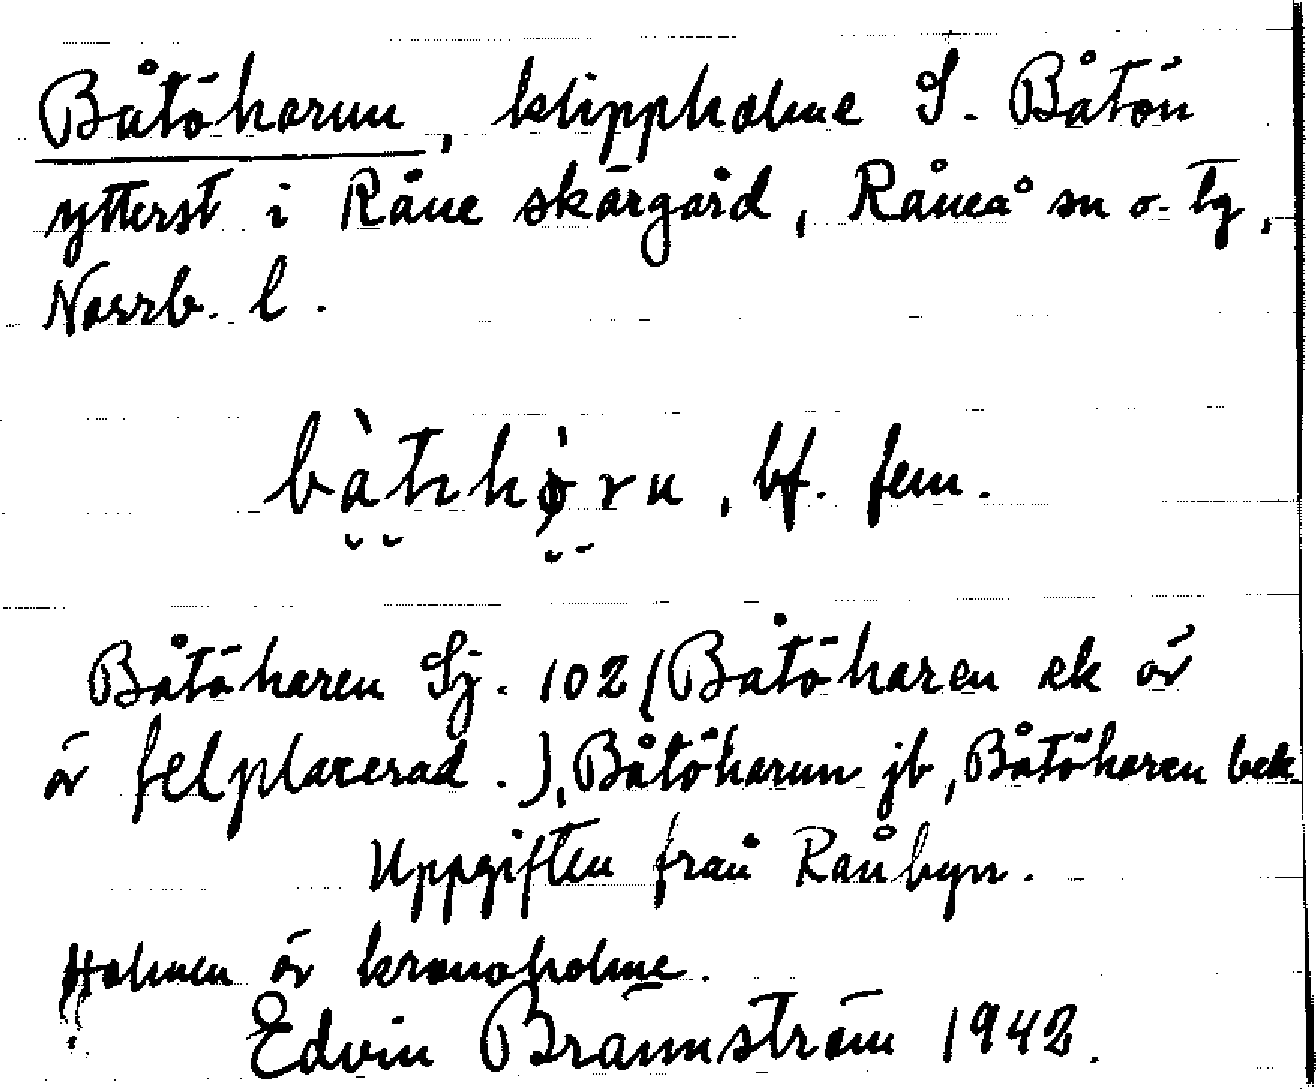 Båtöharun, klippholme S. Båtön
ytterst i Råne skärgård, Råneå sn o. tg,
Norrb. l.
bf. fem.
Båtöharen Sj. 102 (Båtöharen ek är
är felplacerad.), Båtöharun jb, Båtöharen bek
Uppgiften från Rånbyn.
Holmen är kronoholme.
Edvin Brännström 1942.